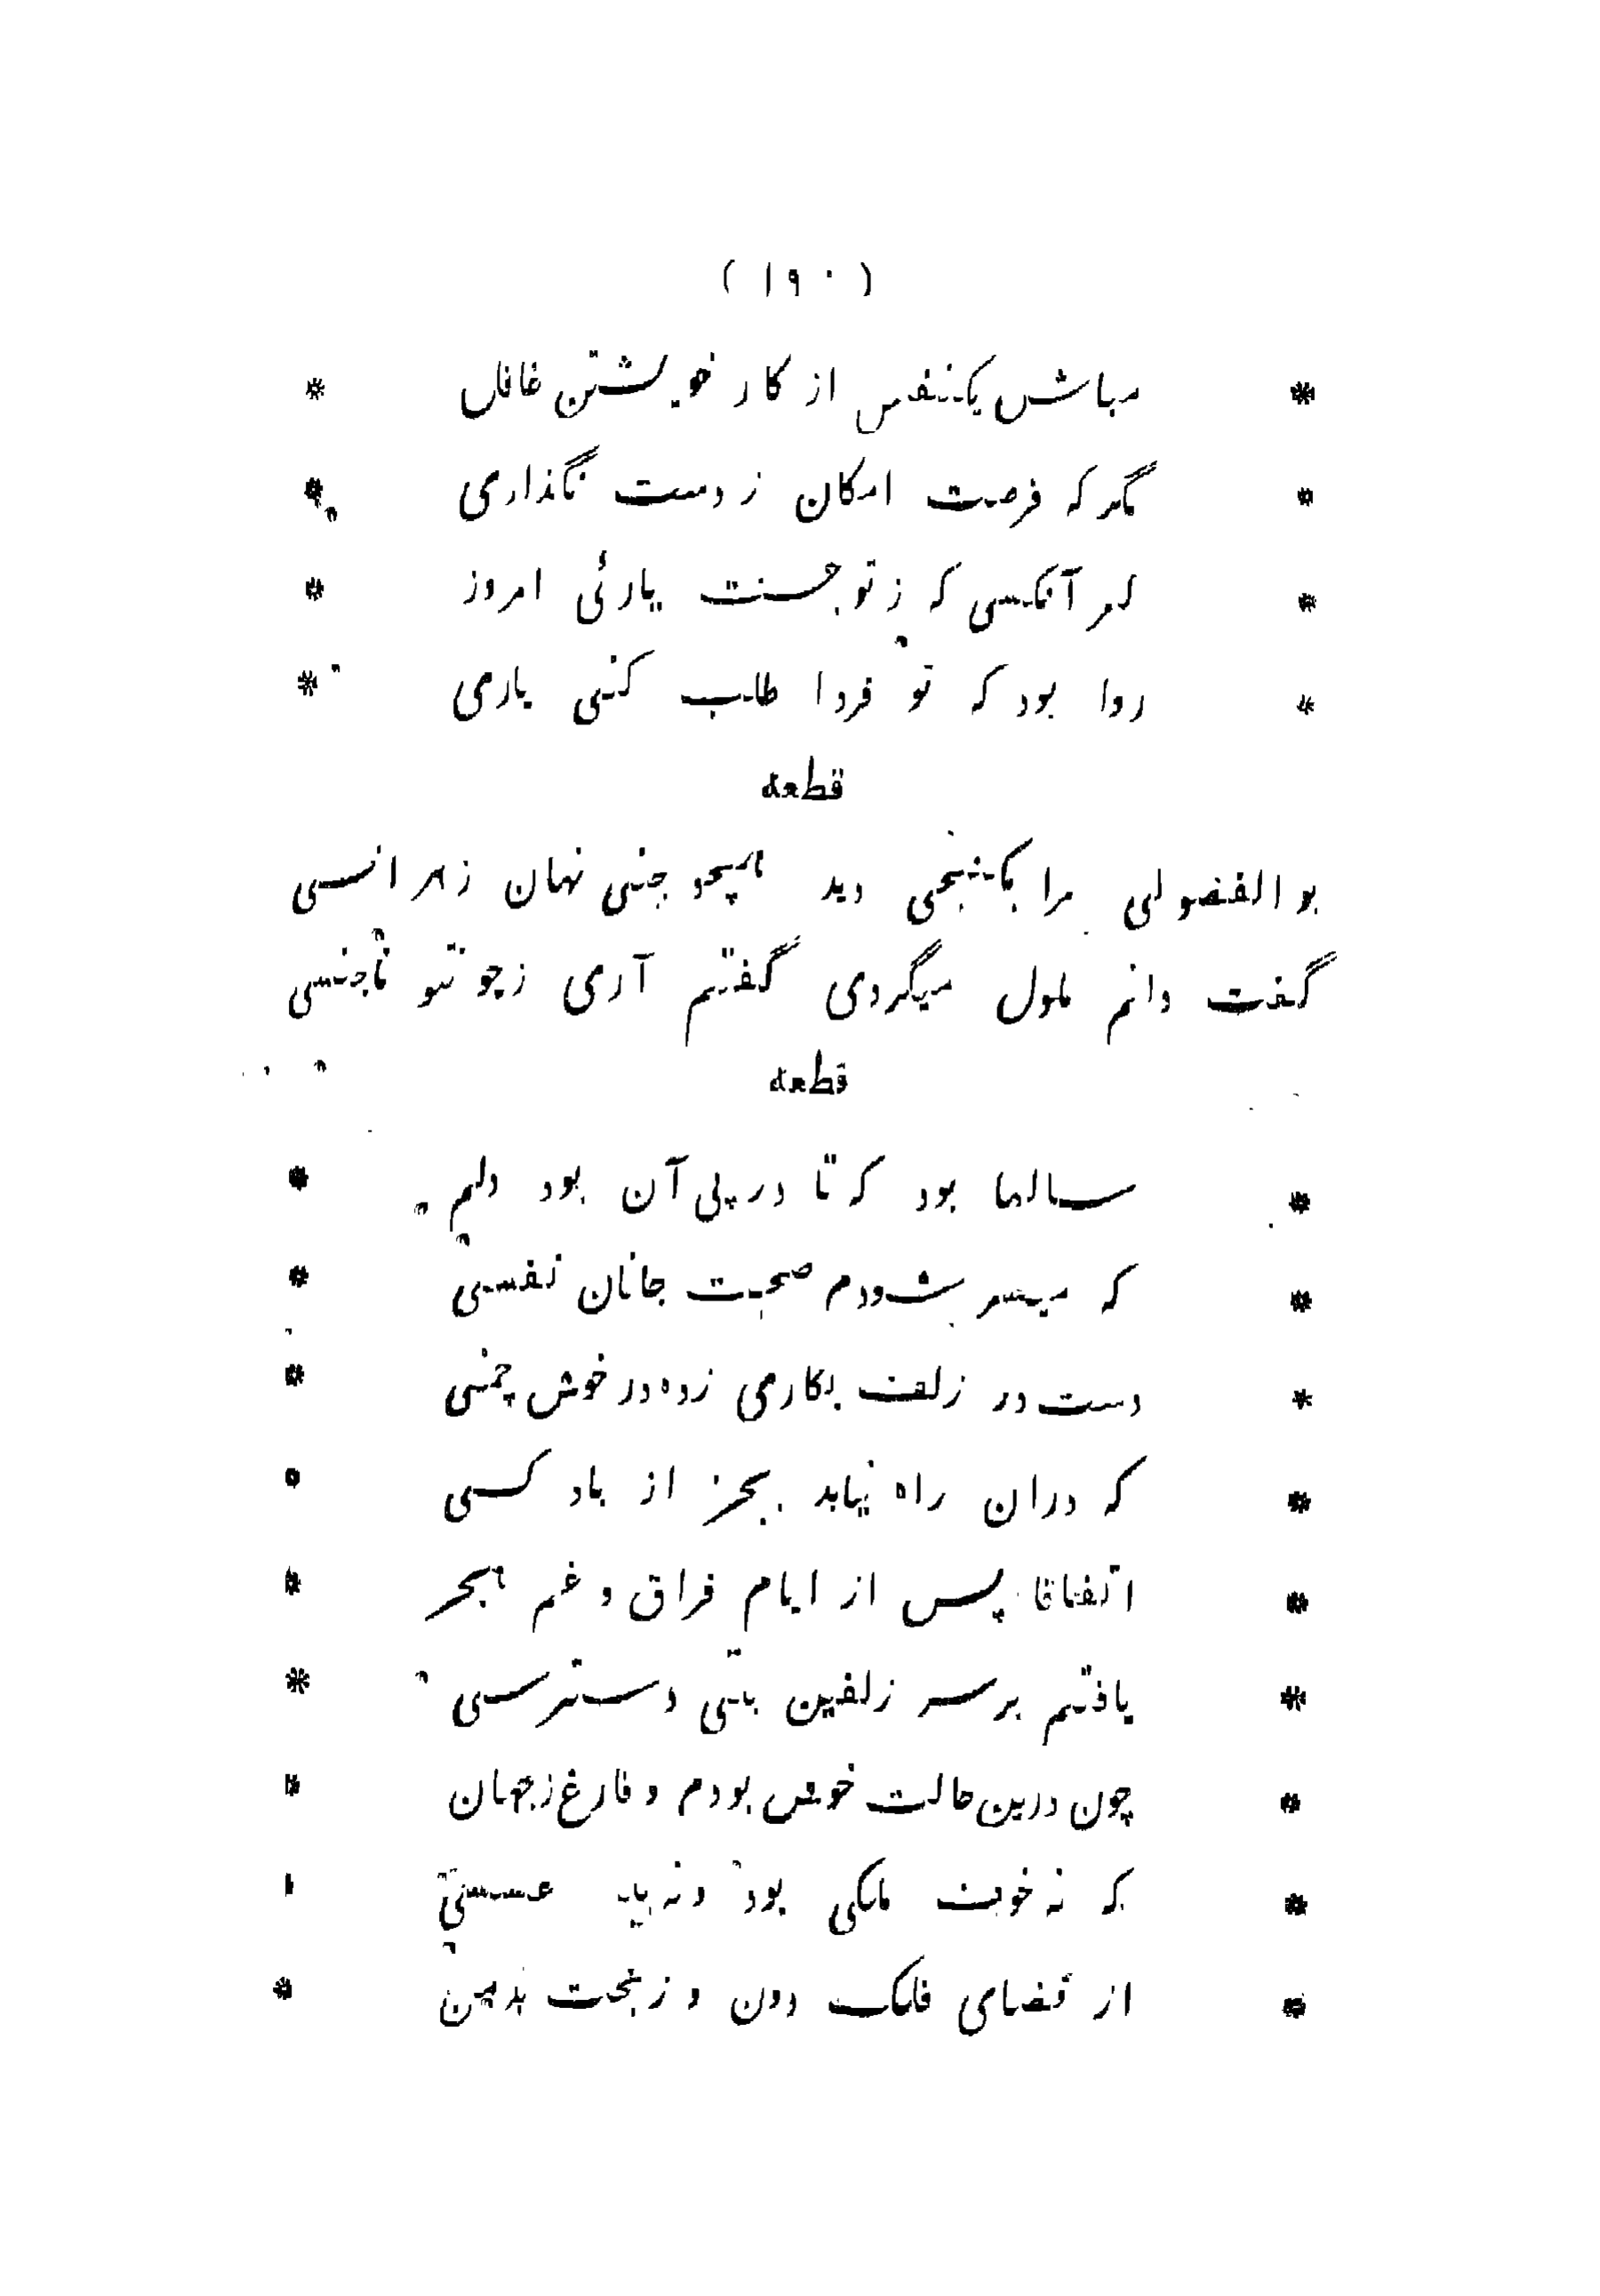 ( ۱۹۰ )
* مباش یکنفس از کار خویشتن غافل *
* مگر که فرصت امکان ز دست نگذاری *
* هر آنکسی که ز تو جست یارئی امروز *
* روا بود که تو فردا طلب کنی یاری *
قطعه
بو الفضولی مرا بکنجی دید همچو جنی نهان ز هر انسی
گفت دانم ملول میگردی گفتم آری ز چو تو ناجنسی
قطعه
* سالها بود که تا در پی آن بود دلم *
* که میسر شودم صحبت جانان نفسی *
* دست در زلف نگاری زده در خوش چمنی *
* که دران راه نیابد بجز از باد کسی *
* اتفاقا پس از ایام فراق و غم هجر *
* یافتم بر سر زلفین بتی دسترسی *
* چون درین حالت خوش بودم و فارغ ز جهان *
* که نه خوف ملکی بود و نه بیم عسسی
* از قضای فلک دون و ز بخت بد من *